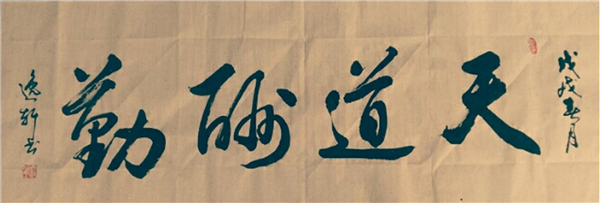 戊戌春月
天道酬勤
逸轩书